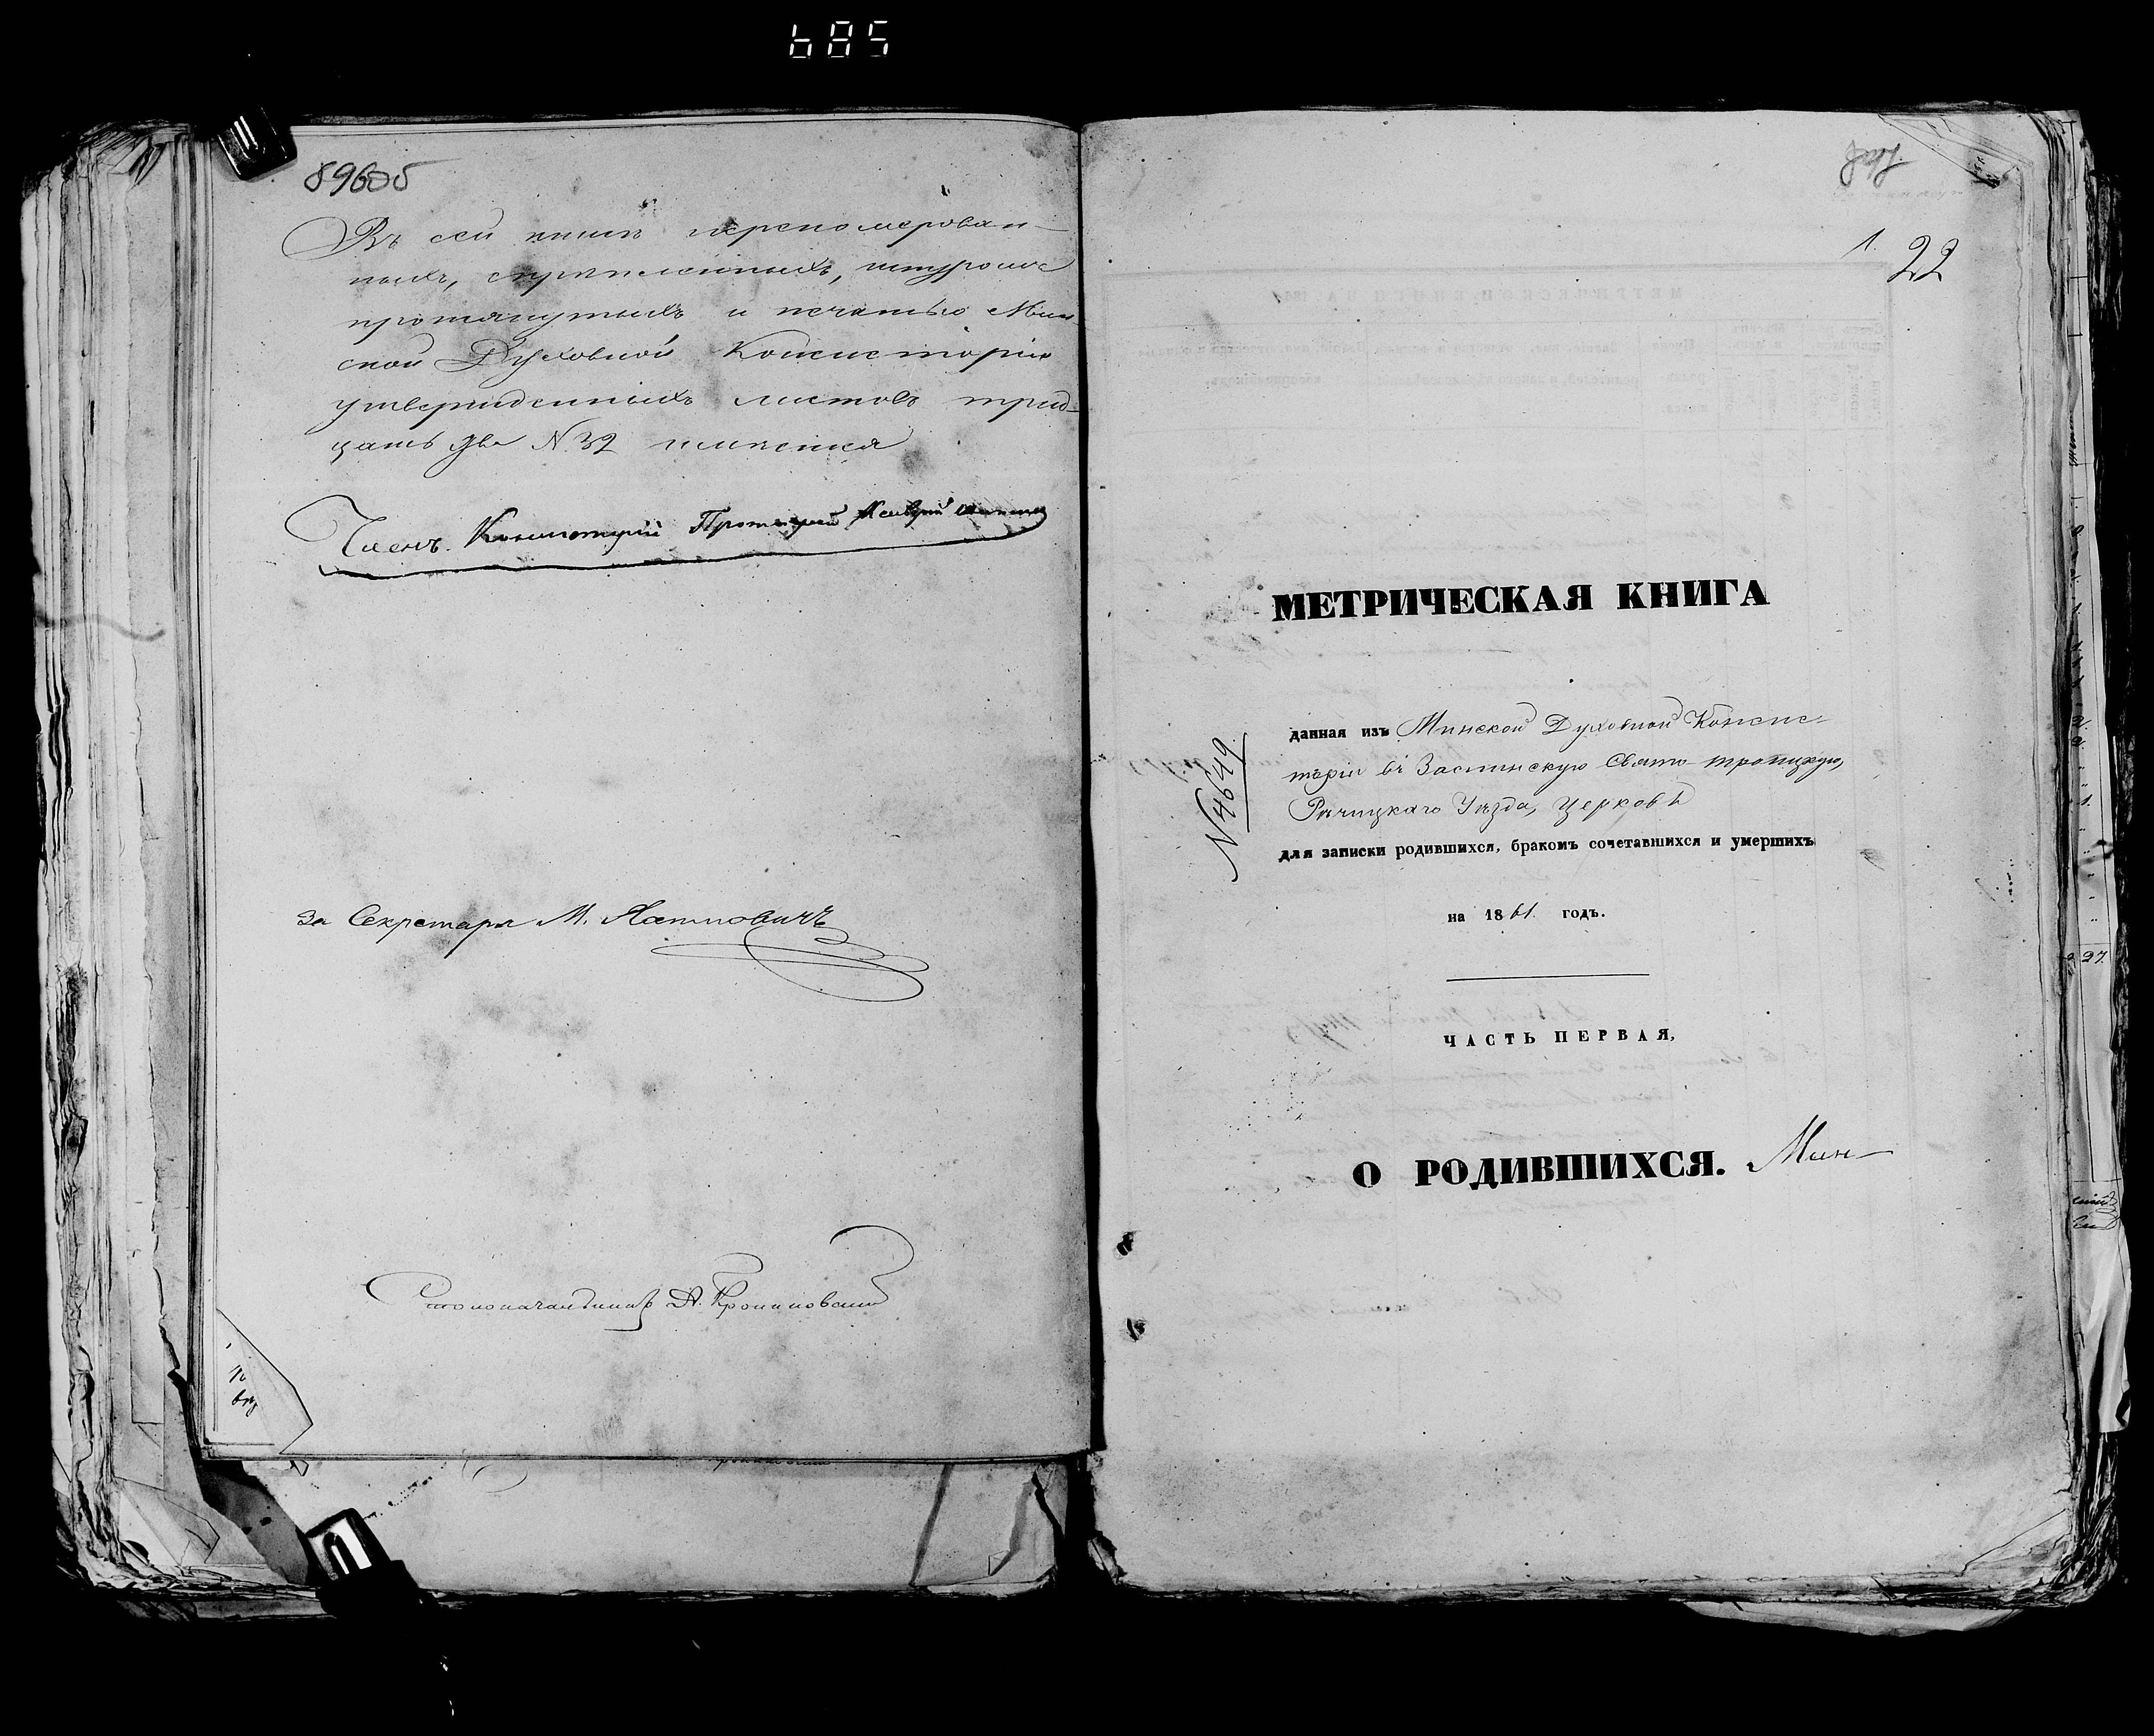 685
896об
Въ сей книгѣ переномерован-
ныхъ, скрѣпленныхъ, шнуромъ
протянутыхъ и печатью Мин
ской Духовной Консисторіи
утвержденныхъ листовъ трид-
цать два N. 32 имѣется
Членъ Консисторіи Протоіерей
За Секретаря М.
Столоначальникъ
1. 22
МЕТРИЧЕСКАЯ КНИГА
данная изъ Минской Духовной Консис-
торіи въ Заспинскую Свято Троицкую,
Рѣчицкаго Уѣзда, Церковь
N 4649
для записки родившихся, бракомъ сочетавшихся и умершихъ
на 1861. годъ.
ЧАСТЬ ПЕРВАЯ,
О РОДИВШИХСЯ. Мин-
27.